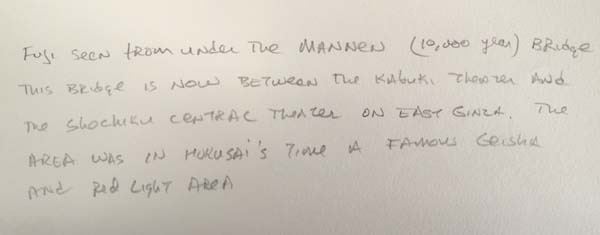 Fuji seen from under the MANNEN (10,000 year) BRidge
This BRidge is NOW BETWEEN the Kabuki Theater AND
the Shochiku CENTRAL Theater ON EAST GINZA. The
AREA WAS IN HUKUSAi's Time A FAMOUS Geisha
AND Red Light AREA